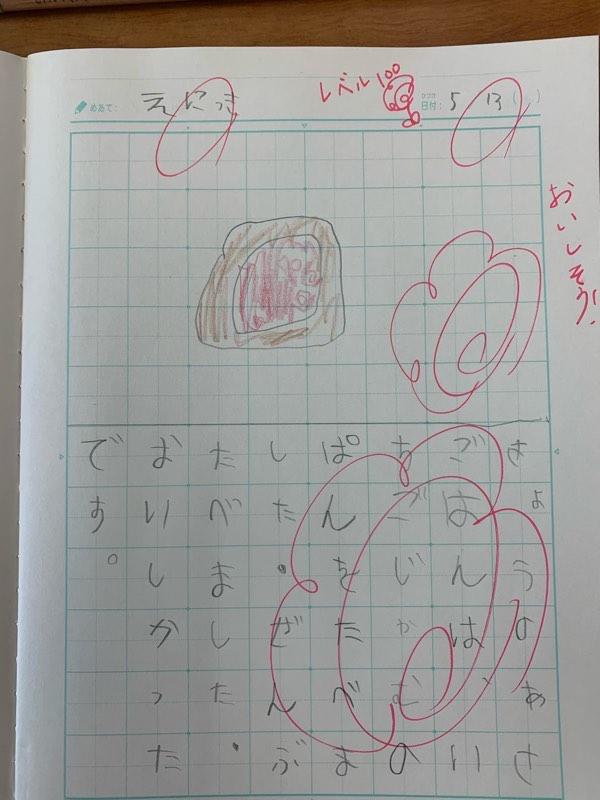 めあて: えにっき
レベル100
日付: 5 13 ( )
おいしそう!
きょうのあさ
ごはんは、い
ちごじゃむの
ぱんをたべま
した。ぜんぶ
たべました。
おいしかった
です。